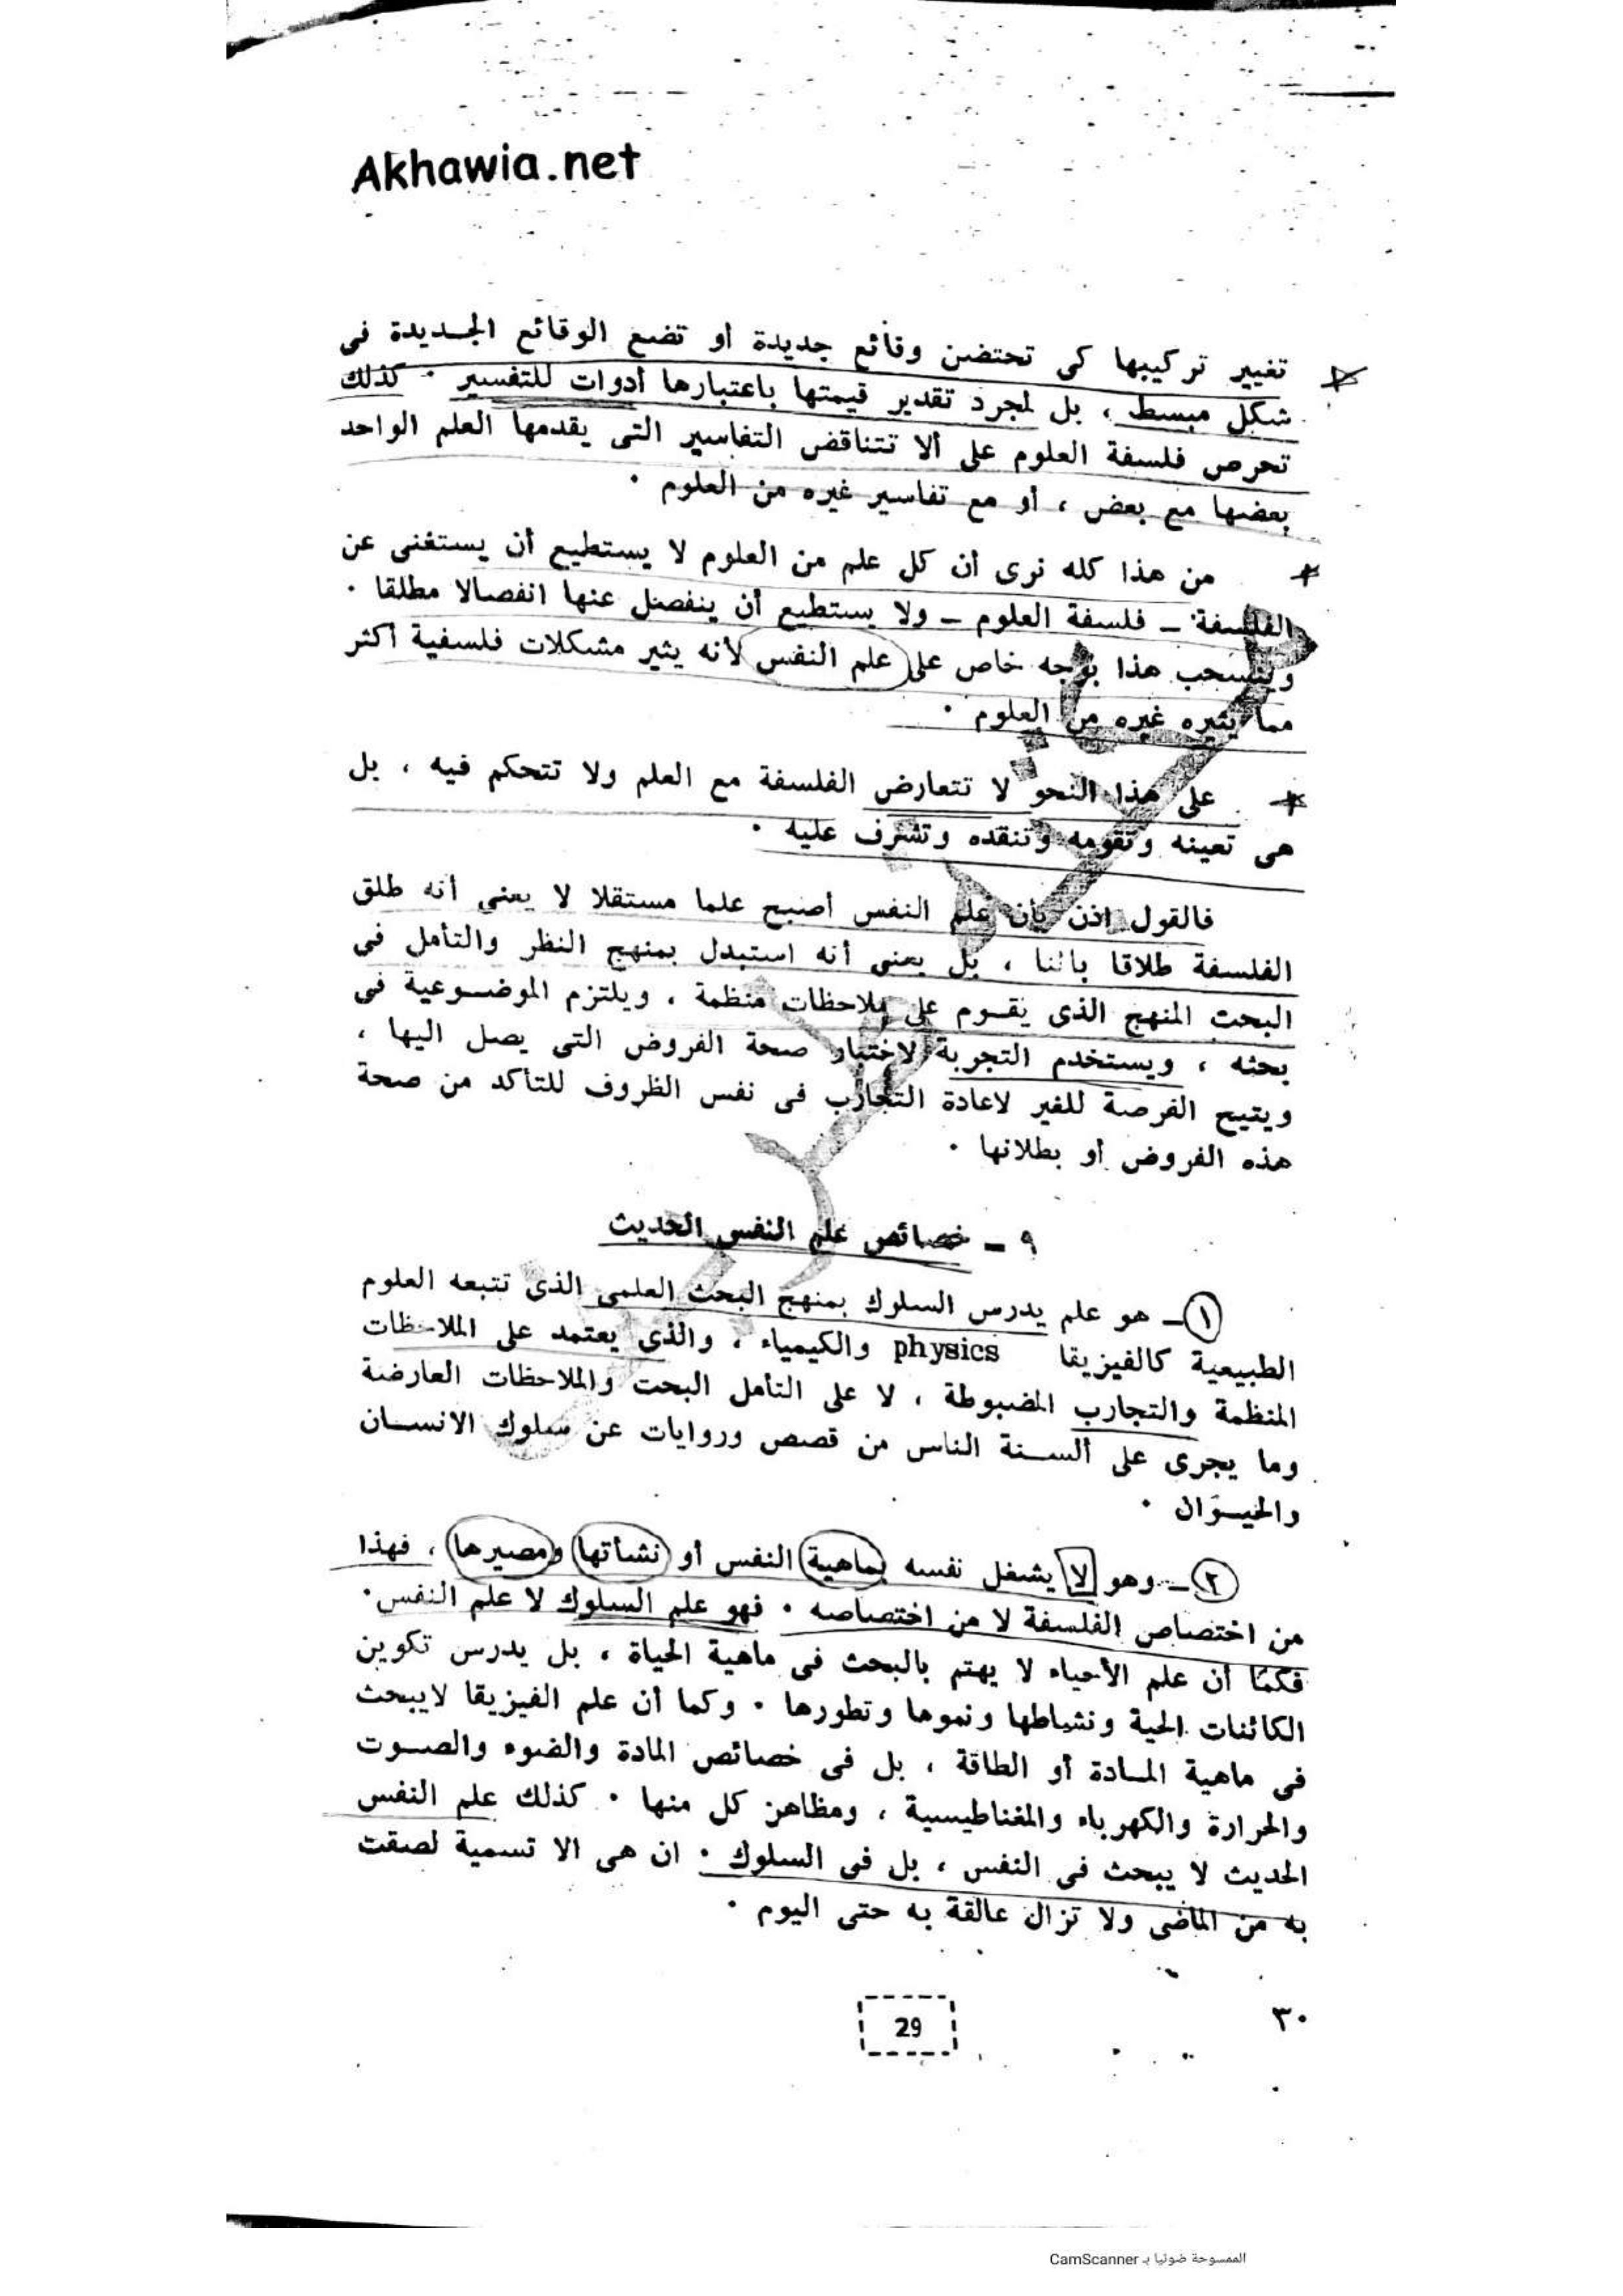 Akhawia.net
تغيير تركيبها كى تحتضن وقائع جديدة او تضع الوقائع الجـديدة فى
شكل مبسط ، بل لمجرد تقدير قيمتها باعتبارها أدوات للتفسير ٠ كذلك
تحرص فلسفة العلوم على ألا تتناقض التفاسير التى يقدمها العلم الواحد
بعضها مع بعض ، أو مع تفاسير غيره من العلوم ٠
من هذا كله نرى أن كل علم من العلوم لا يستطيع أن يستغنى عن
الفلسفة – فلسفة العلوم – ولا يستطيع أن ينفصل عنها انفصالا مطلقا ٠
وينسحب هذا بوجه خاص على علم النفس لأنه يثير مشكلات فلسفية أكثر
مما يثيره غيره من العلوم ٠
على هذا النحو لا تتعارض الفلسفة مع العلم ولا تتحكم فيه ، بل
هى تعينه وتقومه وتنقده وتشرف عليه ٠
فالقول اذن بأن علم النفس أصبح علما مستقلا لا يعنى أنه طلق
الفلسفة طلاقا بائنا ، بل يعنى أنه استبدل بمنهج النظر والتأمل فى
البحث المنهج الذى يقـوم على ملاحظات منظمة ، ويلتزم الموضـوعية فى
بحثه ، ويستخدم التجربة لاختبار صحة الفروض التى يصل اليها ،
ويتيح الفرصة للغير لاعادة التجارب فى نفس الظروف للتأكد من صحة
هذه الفروض أو بطلانها ٠
٩ – خصائص علم النفس الحديث
١ – هو علم يدرس السلوك بمنهج البحث العلمى الذى تتبعه العلوم
الطبيعية كالفيزيقا physics والكيمياء ، والذى يعتمد على الملاحظات
المنظمة والتجارب المضبوطة ، لا على التأمل البحت والملاحظات العارضة
وما يجرى على ألسـنة الناس من قصص وروايات عن سلوك الانسـان
والحيـوان ٠
٢ – وهو لا يشغل نفسه بماهية النفس أو نشأتها ومصيرها ، فهذا
من اختصاص الفلسفة لا من اختصاصه ٠ فهو علم السلوك لا علم النفس ٠
فكما أن علم الأحياء لا يهتم بالبحث فى ماهية الحياة ، بل يدرس تكوين
الكائنات الحية ونشاطها ونموها وتطورها ٠ وكما أن علم الفيزيقا لايبحث
فى ماهية المـادة أو الطاقة ، بل فى خصائص المادة والضوء والصـوت
والحرارة والكهرباء والمغناطيسية ، ومظاهر كل منها ٠ كذلك علم النفس
الحديث لا يبحث فى النفس ، بل فى السلوك ٠ ان هى الا تسمية لصقت
به من الماضى ولا تزال عالقة به حتى اليوم ٠
٣٠
29
الممسوحة ضوئيا بـ CamScanner